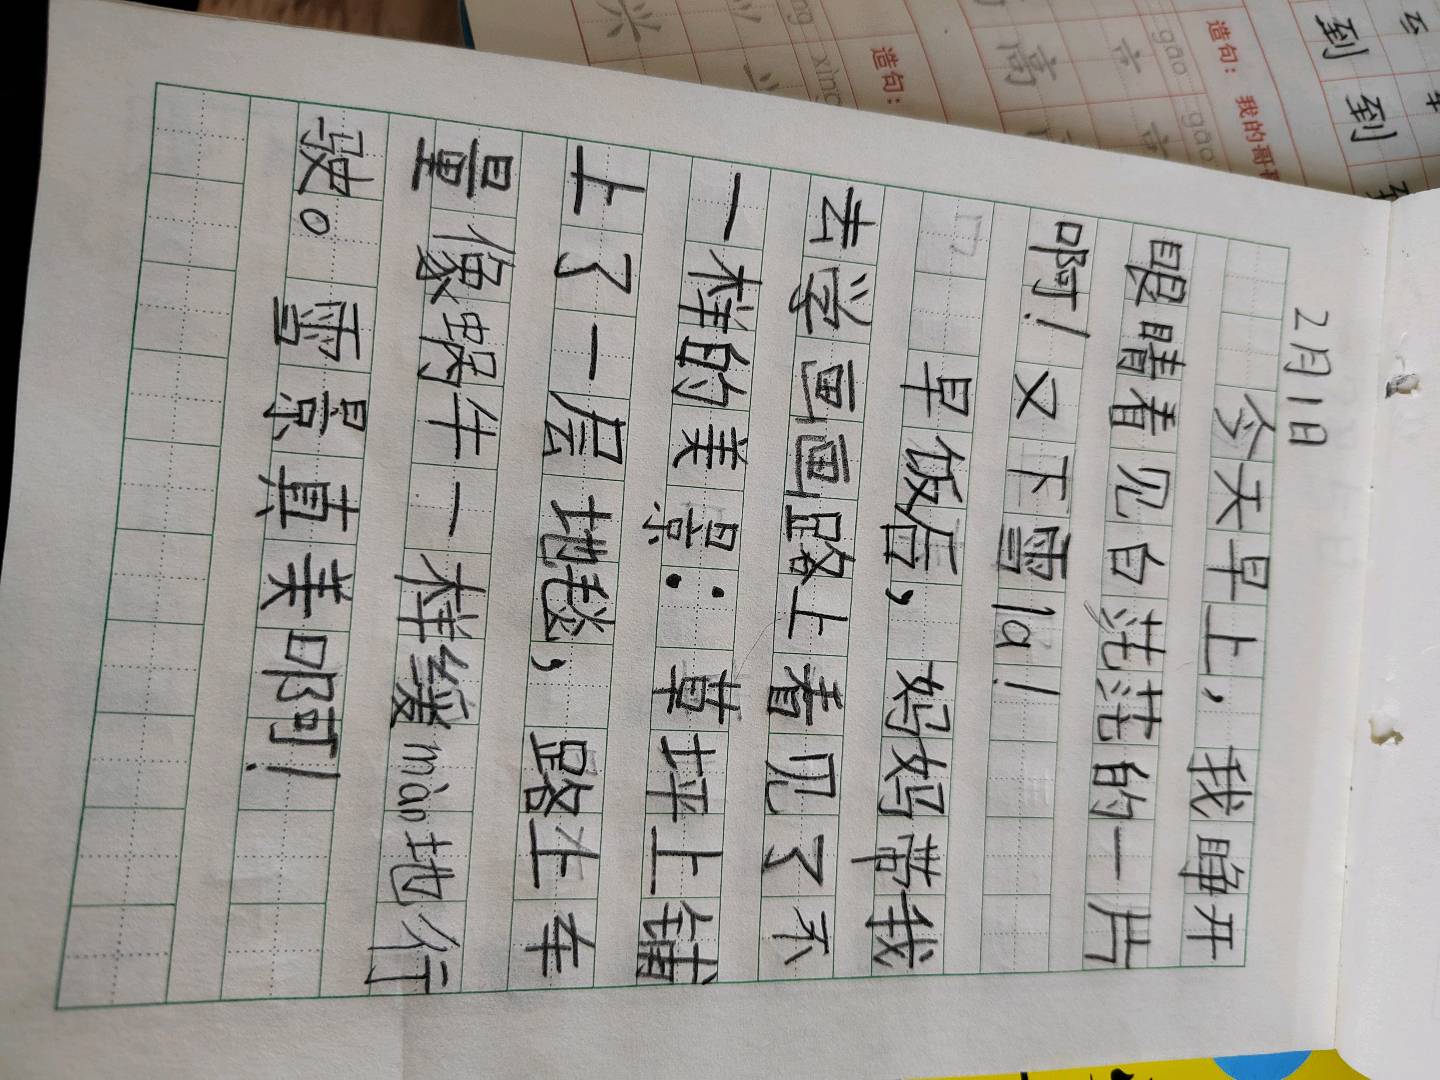 2月1日
今天早上，我睁开
眼睛看见白茫茫的一片
啊！又下雪la！
早饭后，妈妈带我
去学画画路上看见了不
一样的美景：草坪上铺
上了一层地毯，路上车
量像蜗牛一样缓màn地行
驶。雪景真美啊！
造句：
造句：我的哥
gāo gāo
高
xìng
到
到